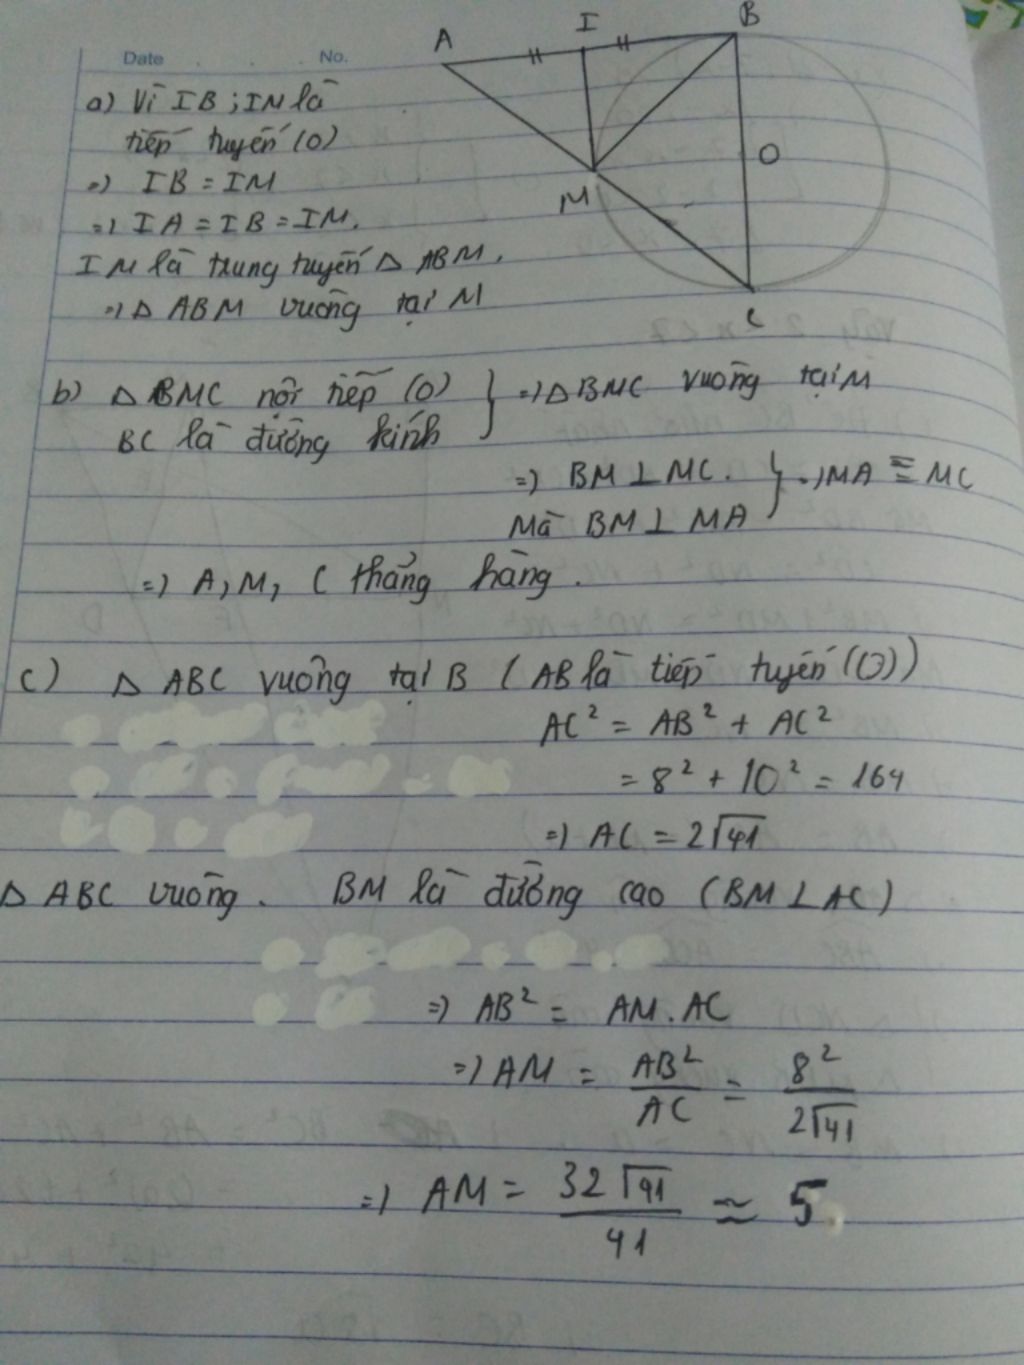 A I B
Date No.
a) Vì IB ; IM là
tiếp tuyến (O)
=) IB = IM
=) IA = IB = IM.
IM là trung tuyến Δ ABM.
=) Δ ABM vuông tại M
O
M
C
b) Δ BMC nội tiếp (O) } =) Δ BMC vuông tại M
BC là đường kính
=) BM ⊥ MC. } =) MA ≡ MC
Mà BM ⊥ MA
=) A, M, C thẳng hàng.
c) Δ ABC vuông tại B (AB là tiếp tuyến (O))
AC² = AB² + AC²
= 8² + 10² = 164
=) AC = 2√41
Δ ABC vuông. BM là đường cao (BM ⊥ AC)
=) AB² = AM . AC
=) AM = AB²/AC = 8²/2√41
=) AM = 32√41/41 ≈ 5